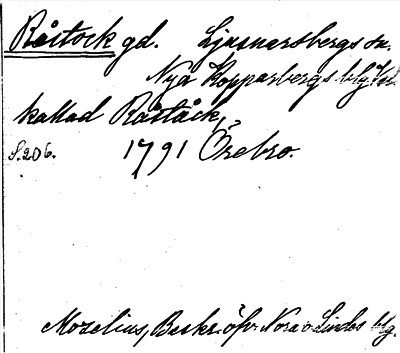 Råstock gd. Ljusnarsbergs sn.
Nya Kopparbergs blg
kallad Råståck,
S.206. 1791 Örebro.
Mozelius, Beskr. öfv. Nora o Lindes blg.